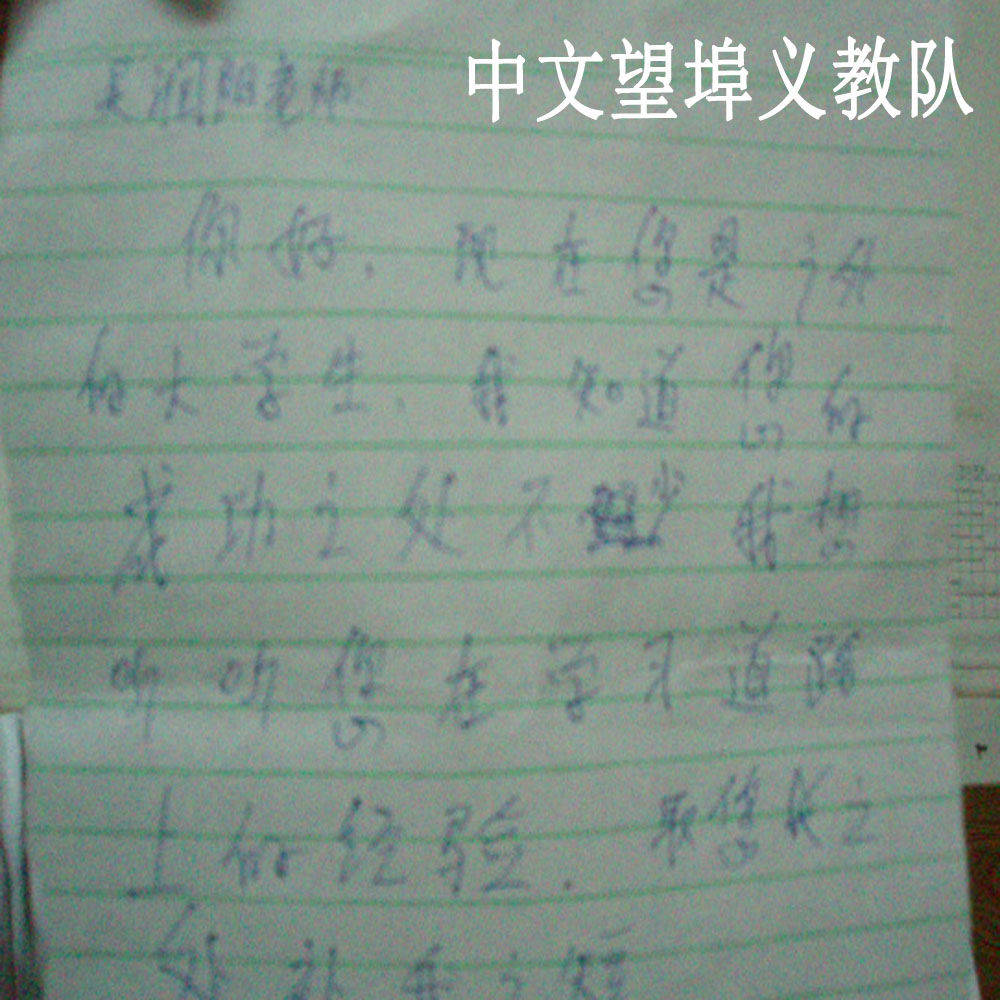 中文望埠义教队
吴润阳老师
你好，现在您是亍外
的大学生，我知道您的
成功之处不少我想
听听您在学习道路
上的经验．取您长之
处补吾之短